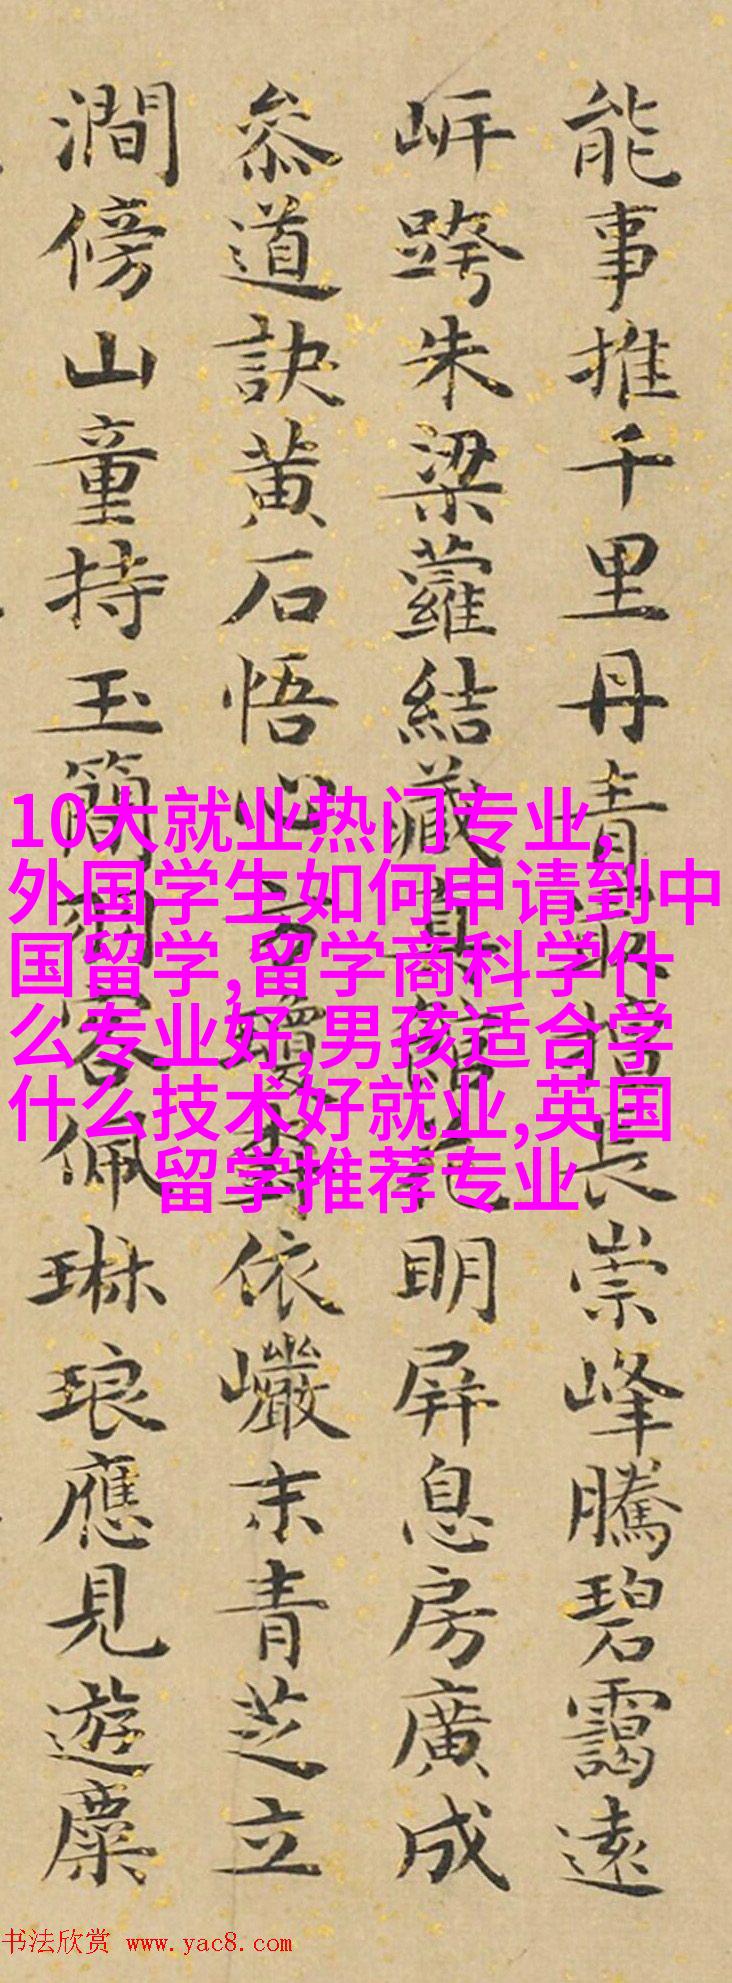 能事推千里丹青最擅長崇峰騰碧靄遠
岍跨朱梁蘿結藏書館花明屏息房廣成
叅道訣黃石悟心方依巘末青芝立
澗傍山童持玉簡客佩琳琅應見遊麋
10大就业热门专业,
外国学生如何申请到中
国留学,留学商科学什
么专业好,男孩适合学
什么技术好就业,英国
留学推荐专业
书法欣赏 www.yac8.com